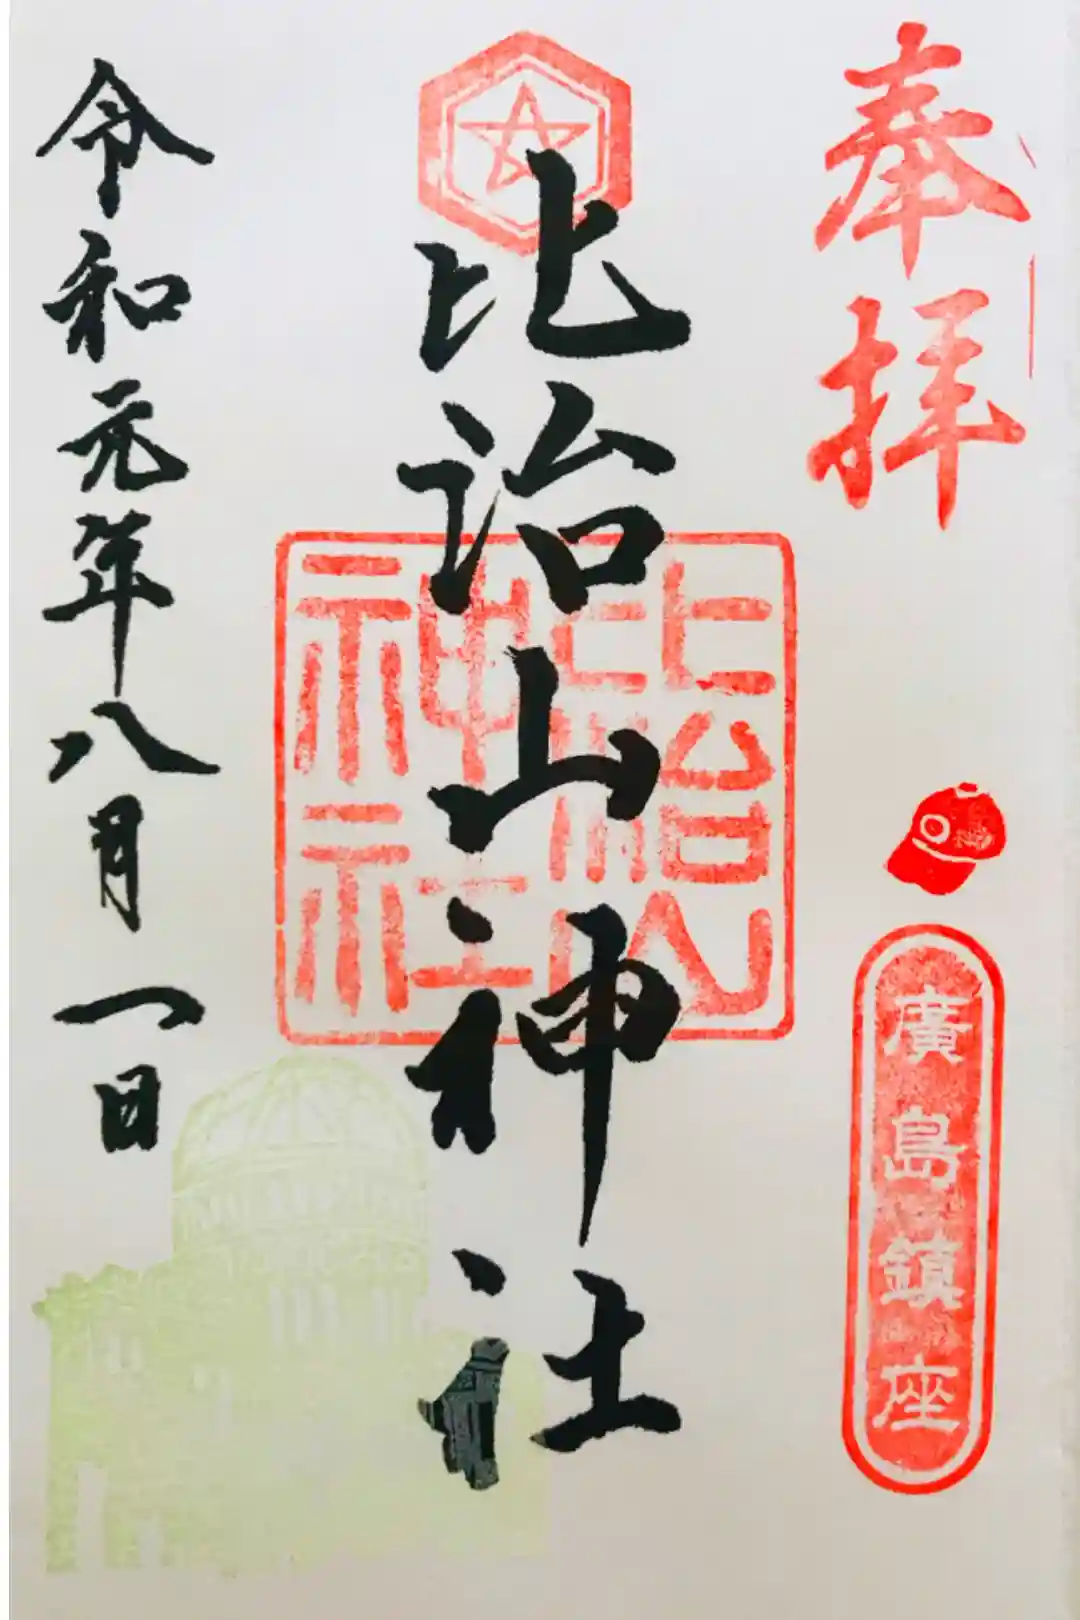 奉拝
廣島鎮座
比治山神社
比治山
神社
令和元年八月一日